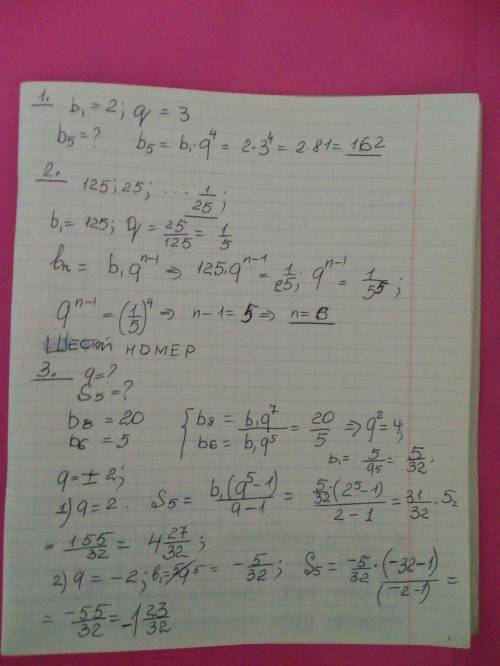 1. b₁ = 2; q = 3
b₅ = ? b₅ = b₁·q⁴ = 2·3⁴ = 2·81 = 162
2. 125; 25; ... 1/25;
b₁ = 125; q = 25/125 = 1/5
bn = b₁qⁿ⁻¹ ⇒ 125·qⁿ⁻¹ = 1/25; qⁿ⁻¹ = 1/5⁵;
qⁿ⁻¹ = (1/5)⁴ ⇒ n-1 = 5 ⇒ n = 6
ШЕСТОЙ НОМЕР
3. q = ?
S₅ = ?
b₈ = 20 { b₈ = b₁q⁷
b₆ = 5 b₆ = b₁q⁵ = 20/5 ⇒ q² = 4;
b₁ = 5/q⁵ = 5/32.
q = ± 2;
1) q = 2. S₅ = b₁(q⁵-1)/q-1 = 5/32(2⁵-1)/2-1 = 31/32·5=
= 155/32 = 4 27/32;
2) q = -2; b₁ = = -5/32; S₅ = -5/32·(-32-1)/(-2-1) =
= -55/32 = -1 23/32